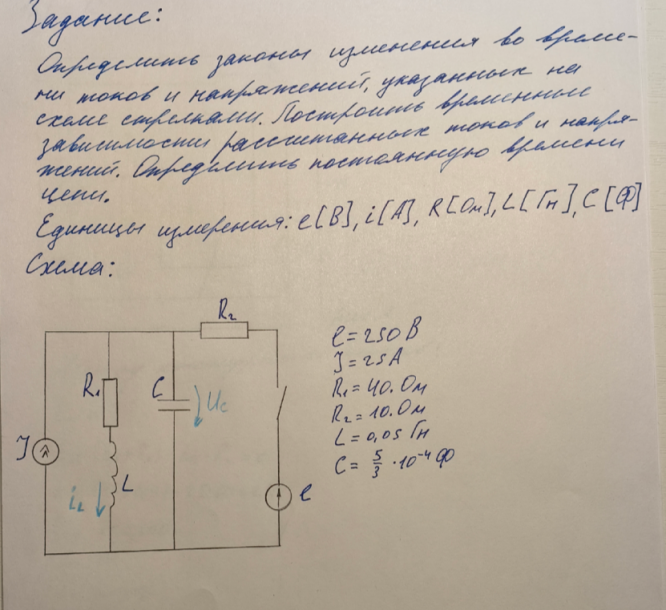 Задание:
Определить законы изменения во време-
ни токов и напряжений, указанных на
схеме стрелками. Построить временные
зависимости рассчитанных токов и напря-
жений. Определить постоянную времени
цепи.
Единицы измерения: e[В], i[А], R[Ом], L[Гн], C[Ф]
Схема:
R₂
e = 250 В
J = 25 А
R₁ = 40. Ом
R₂ = 10. Ом
L = 0,05 Гн
C = 5/3 · 10⁻⁴ Ф
R₁
C
Uc
J
L
i₂
e